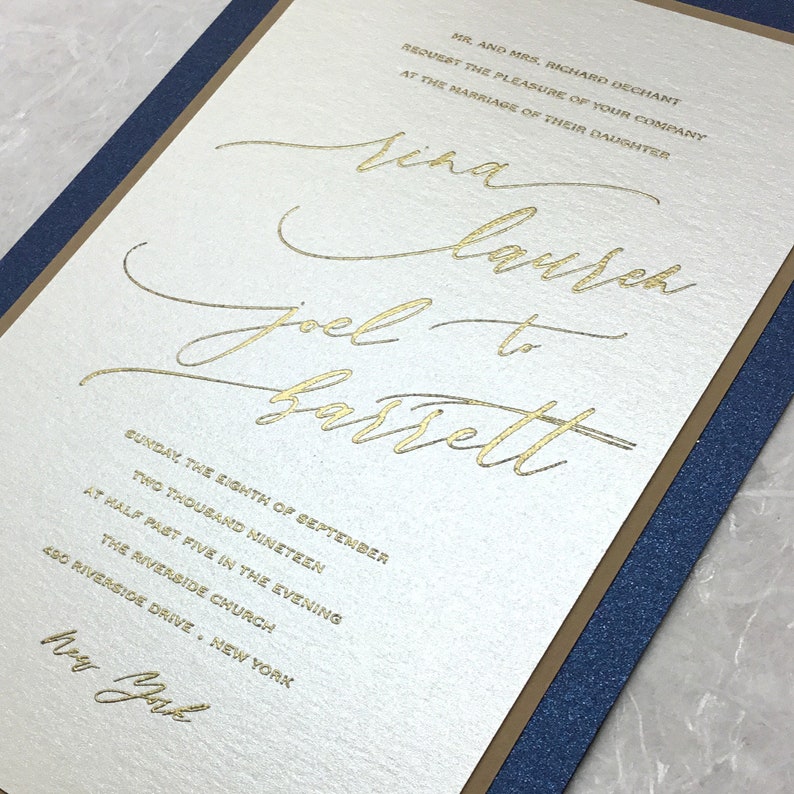 MR. AND MRS. RICHARD DECHANT
REQUEST THE PLEASURE OF YOUR COMPANY
AT THE MARRIAGE OF THEIR DAUGHTER
sina
lauren
to
joel
barrett
SUNDAY, THE EIGHTH OF SEPTEMBER
TWO THOUSAND NINETEEN
AT HALF PAST FIVE IN THE EVENING
THE RIVERSIDE CHURCH
490 RIVERSIDE DRIVE • NEW YORK
New York